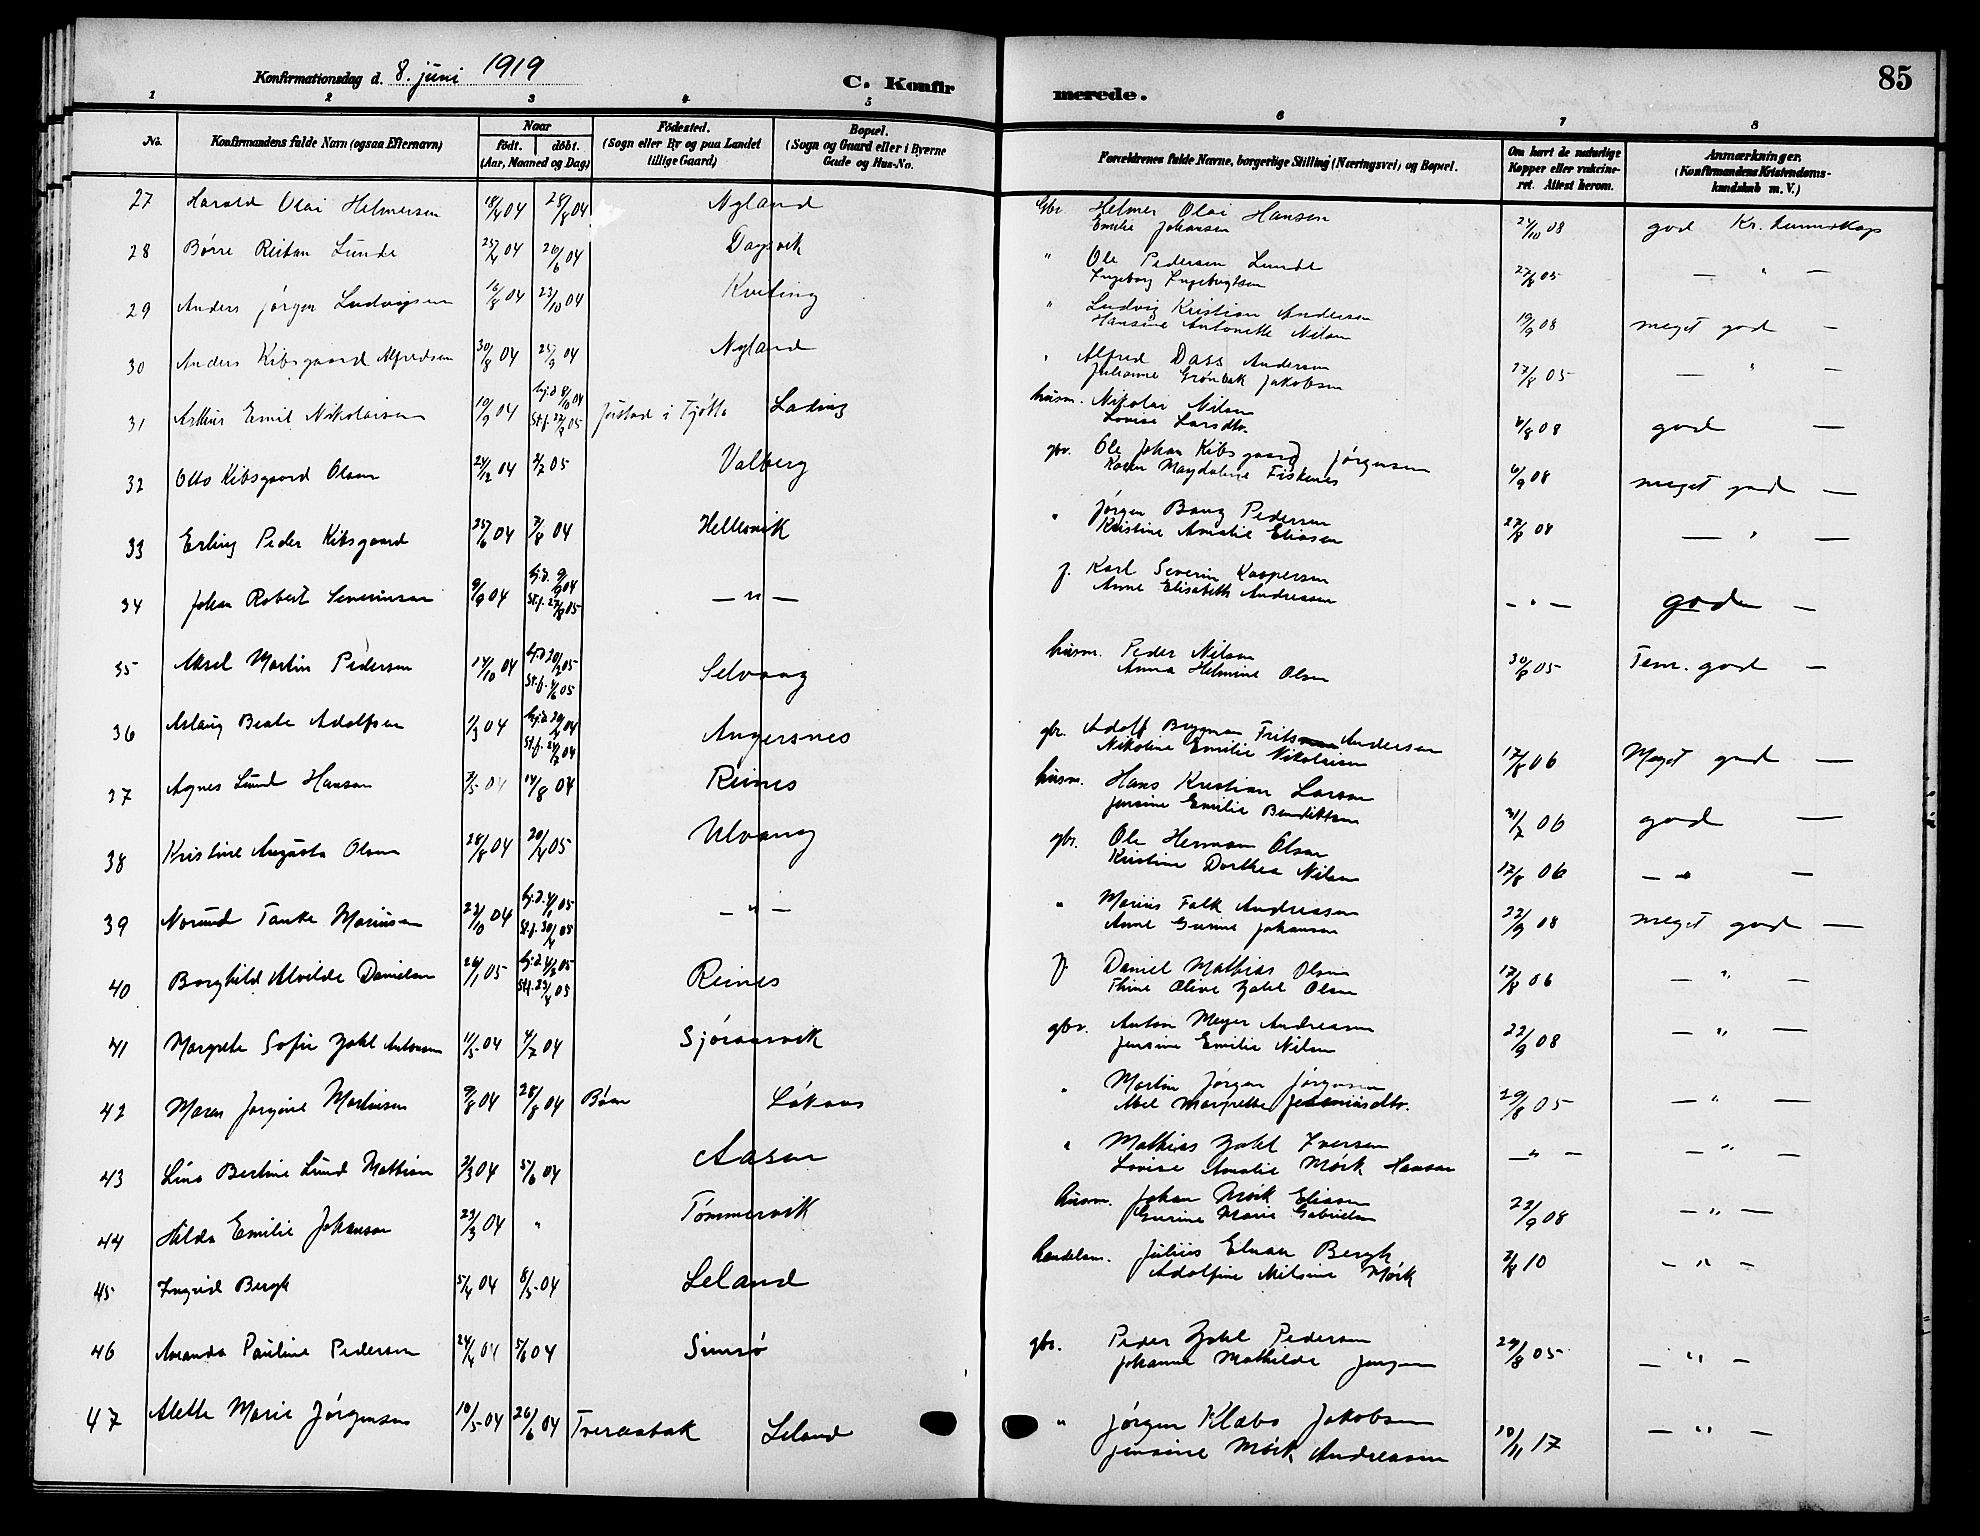 Konfirmationsdag d. 8. juni 1919
C. Konfirmerede.
85
1 2 3 4 5 6 7 8
No. Konfirmandens fulde Navn (ogsaa Efternavn) Naar født. døbt. (Aar, Maaned og Dag) Fødested. (Sogn eller By og paa Landet tillige Gaard) Bopæl. (Sogn og Gaard eller i Byerne Gade og Hus-No. Forældrenes fulde Navne, borgerlige Stilling (Næringsvei) og Bopæl. Om havt de naturlige Kopper eller vakcineret. Attest herom. Anmærkninger. (Konfirmandens Kristendomskundskab m. V.)
27 Harald Olai Helmersen 18/4 04 28/8 04 Nyland Gbr. Helmer Olai Hansen
Emilie Johansen 24/10 08 god Kr. kunnskap
28 Børre Reitan Lunde 25/4 04 26/6 04 Dagsvik " Ole Pedersen Lunde
Ingeborg Ingebrigtsen 27/8 05 — " —
29 Anders Jørgen Ludvigsen 16/8 04 23/10 04 Kveting " Ludvig Kristian Andersen
Hansine Antonette Nilsen 19/9 08 meget god —
30 Anders Kibsgaard Alfredsen 30/8 04 25/9 04 Nyland " Alfred Dass Andersen
Julianne Grönbek Jakobsen 27/8 05 — " —
31 Arthur Emil Nikolaisen 10/9 04 hj.d. 8/10 04
St.f. 22/2 05 Justad i Tjøtta Lading husm. Nikolai Nilsen
Lovise Larsdtr. 6/8 08 god —
32 Otto Kibsgaard Olsen 24/12 04 2/7 05 Valberg gbr. Ole Johan Kibsgaard Jørgensen
Karen Magdalene Fiskenes 6/9 08 meget god —
33 Erling Peder Kibsgaard 25/6 04 7/8 04 Hellesvik " Jørgen Bang Pedersen
Kristine Amalie Eliasen 27/8 08 — " —
34 Johan Robert Severinsen 9/9 04 hj.d. 9/9 04
St.f. 27/8 05 — " — f. Karl Severin Kaspersen
Anne Elisabeth Andreassen — " — god —
35 Aksel Martin Pedersen 14/10 04 hj.d. 20/2 05
St.f. 4/6 05 Selvaag husm. Peder Nilsen
Anna Helmine Olsen 30/8 05 Tem. god —
36 Aslaug Beate Adolfsen 1/3 04 hj.d. 29/4 04
St.f. 24/7 04 Angersnes gbr. Adolf Brygman Frits Andersen
Nikoline Emilie Nikolaisen 17/8 06 Meget god —
37 Agnes Lund Hansen 7/5 04 14/8 04 Reines husm. Hans Kristian Larsen
Jensine Emilie Bendiktsen 31/7 06 god —
38 Kristine Augusta Olsen 28/8 04 20/4 05 Ulvang gbr. Ole Herman Olsen
Kristine Dorthea Nilsen 17/8 06 — " —
39 Norund Tanke Mariusen 23/10 04 hj.d. 4/1 05
St.f. 30/4 05 — " — " Marius Falk Andreassen
Anne Gurine Johansen 22/9 08 meget god —
40 Borghild Alvilde Danielsen 26/1 05 hj.d. 4/3 05
St.f. 23/4 05 Reines f. Daniel Mathias Olsen
Thine Olive Zahl Olsen 17/8 06 — " —
41 Margrete Sofie Zahl Antonsen 11/5 04 4/7 04 Sjøraasvik gbr. Anton Meyer Andreasen
Jensine Emilie Nilsen 22/9 08 — " —
42 Maren Jørgine Martinsen 9/8 04 28/8 04 Bøen Løkaas " Martin Jørgen Jørgensen
Abel Margrethe Jeremiasdtr. 29/8 05 — " —
43 Lina Bertine Lund Mathisen 3/3 04 5/6 04 Aasen " Mathias Zahl Iversen
Lovise Amalie Mørk Hansen — " — — " —
44 Hilda Emilie Johansen 23/3 04 " Tømmervik husm. Johan Mørk Eliasen
Gurine Marie Gabrielsen 22/9 08 — " —
45 Ingrid Bergh 5/4 04 8/5 04 Leland handelsm. Julius Elnan Bergh
Adolfine Nilsine Mørk 3/8 10 — " —
46 Amanda Pauline Pedersen 24/4 04 5/6 04 Simsø gbr. Peder Zahl Pedersen
Johanne Mathilde Jensen 29/8 05 — " —
47 Alette Marie Jørgensen 10/5 04 26/6 04 Tveraabak Leland " Jørgen Klæbo Jakobsen
Jensine Mørk Andreasen 10/11 17 — " —